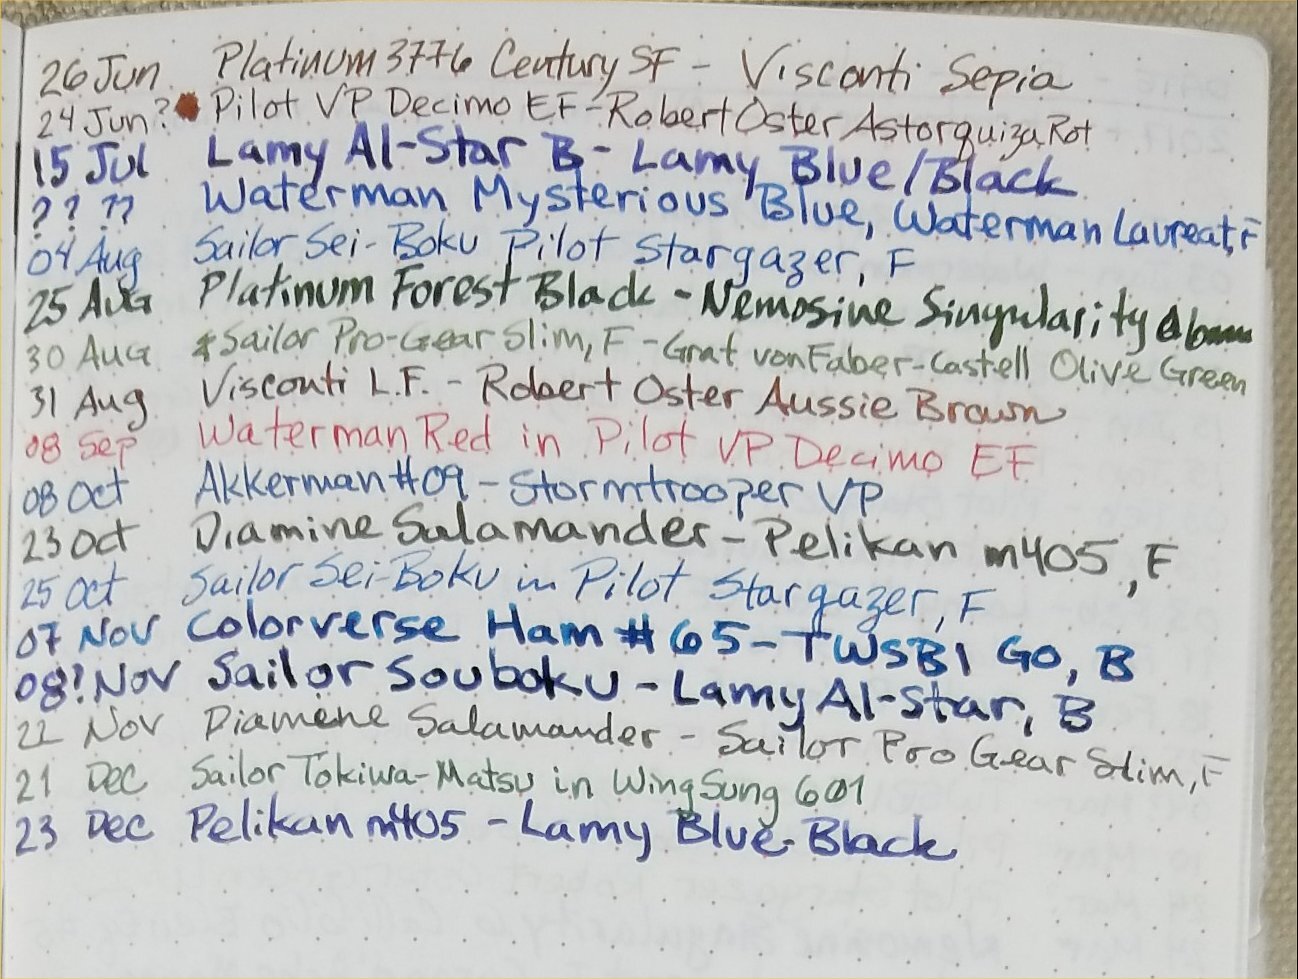 26 Jun Platinum 3776 Century SF - Visconti Sepia
24 Jun? Pilot VP Decimo EF - Robert Oster Astorquiza Rot
15 Jul Lamy Al-Star B - Lamy Blue/Black
? ? ?? Waterman Mysterious Blue, Waterman Laureat, F
04 Aug Sailor Sei-Boku Pilot Stargazer, F
25 Aug Platinum Forest Black - Nemosine Singularity
30 Aug Sailor Pro-Gear Slim, F - Graf von Faber-Castell Olive Green
31 Aug Visconti L.F. - Robert Oster Aussie Brown
08 Sep Waterman Red in Pilot VP Decimo EF
08 Oct Akkerman #09 - Stormtrooper VP
23 Oct Diamine Salamander - Pelikan m405, F
25 Oct Sailor Sei-Boku in Pilot Stargazer, F
07 Nov Colorverse Ham #65 - TWSBI GO, B
08? Nov Sailor Souboku - Lamy Al-Star, B
22 Nov Diamene Salamander - Sailor Pro Gear Slim, F
21 Dec Sailor Tokiwa-Matsu in Wing Sung 601
23 Dec Pelikan m405 - Lamy Blue-Black